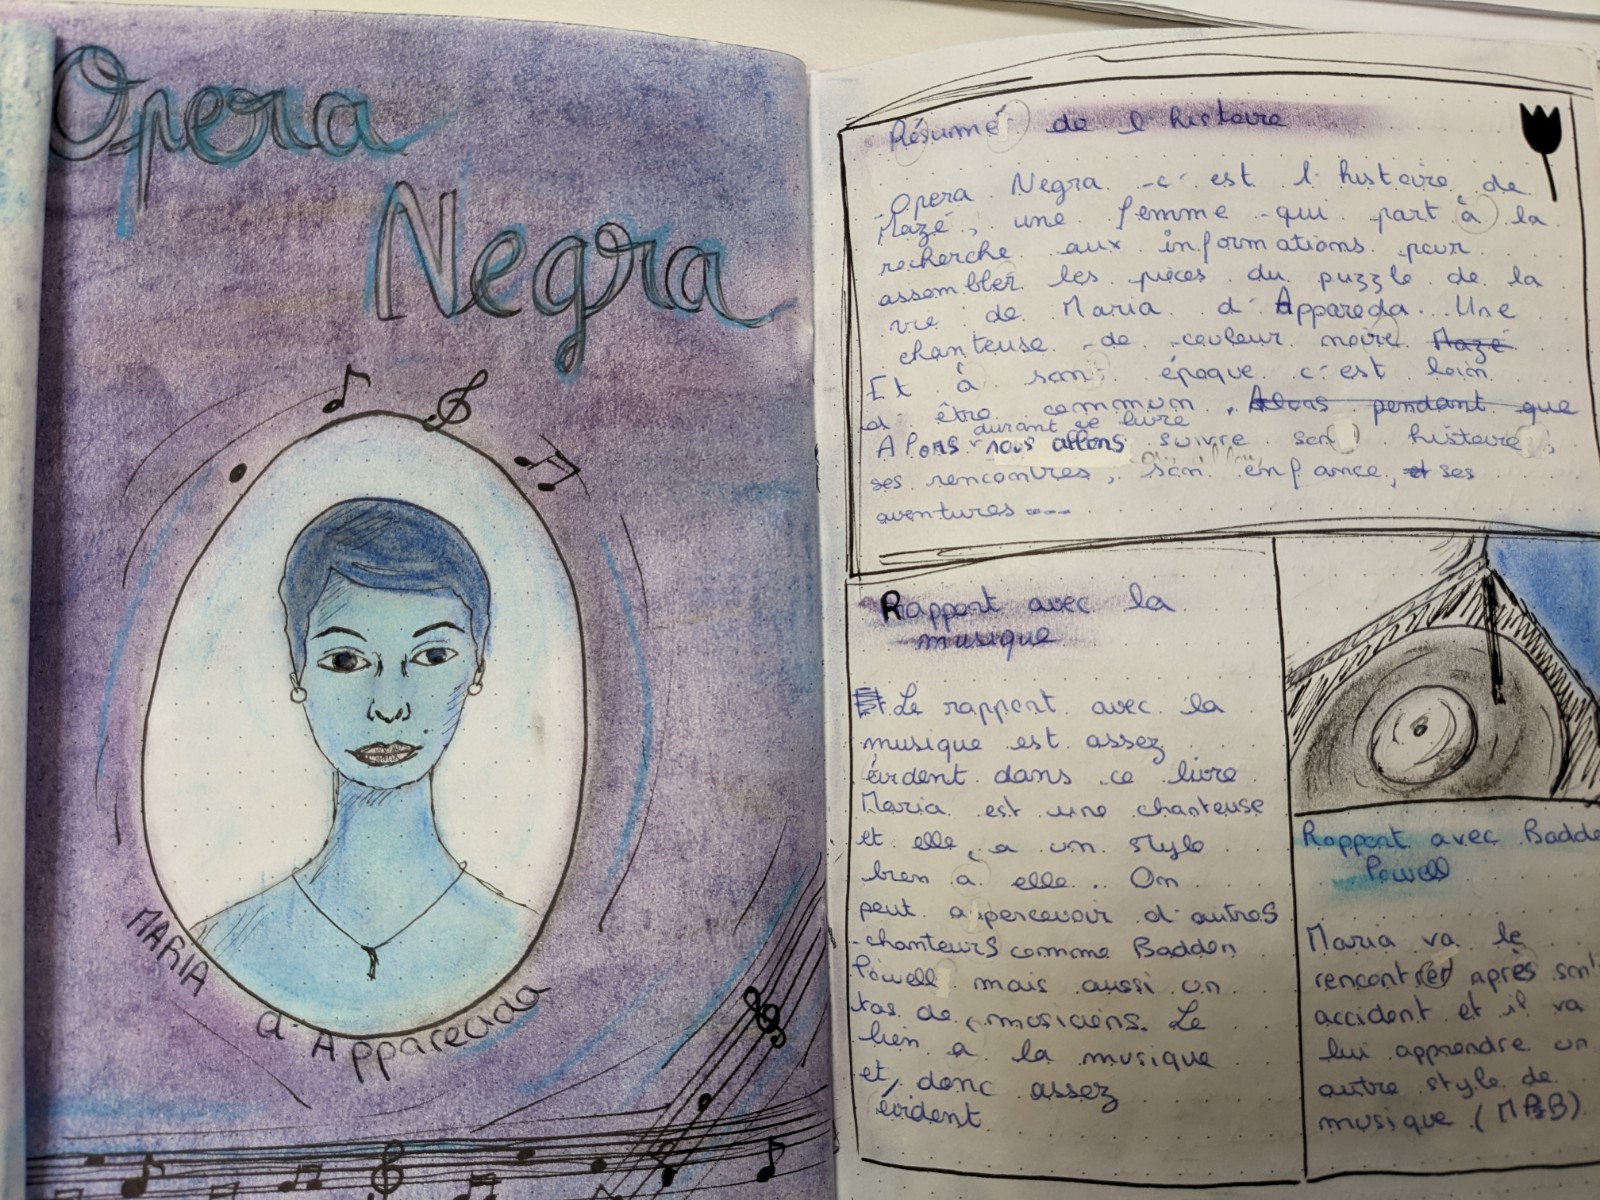 Opera
Negra
MARIA
d'Apparecida
Résumé de l histoire
Opera Negra c'est l'histoire de
Mazé, une femme qui part à la
recherche aux informations pour
assembler les pièces du puzzle de la
vie de Maria d'Appareda. Une
chanteuse de couleur noire Mazé
Et à son époque c'est loin
d'être commun. Alors pendant que
durant ce livre
Alors nous allons suivre son histoire,
ses rencontres, son enfance, et ses
aventures ----
Rapport avec la
musique
Et Le rapport avec la
musique est assez
évident dans ce livre
Maria est une chanteuse
et elle a un style
bien a elle. On
peut apercevoir d'autres
chanteurs comme Badden
Powell mais aussi un
tas de musiciens. Le
lien a la musique
et donc assez
évident
Rapport avec Badde
Powell
Maria va le
rencontrer après son
accident et il va
lui apprendre un
autre style de
musique (MPB)